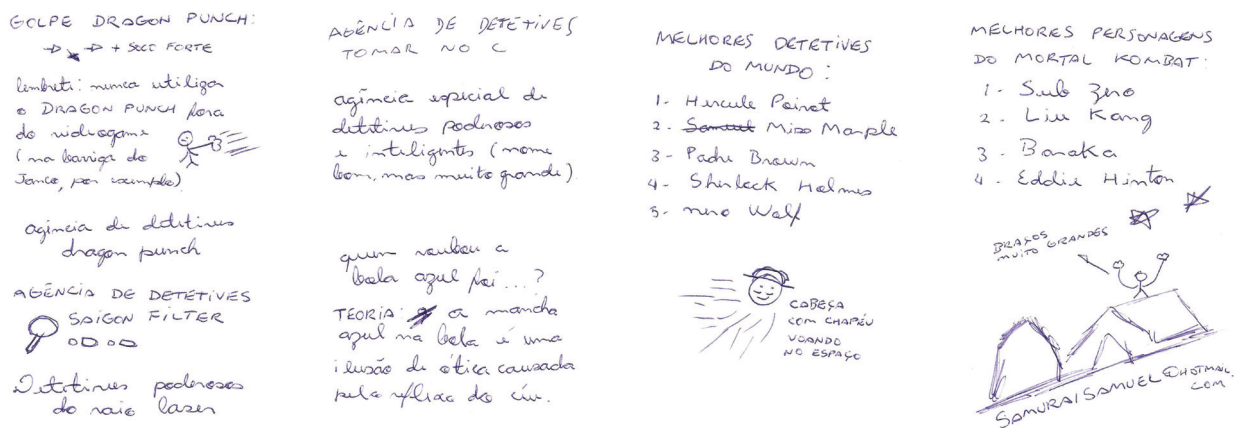 GOLPE DRAGON PUNCH:
+ SOCO FORTE
lembrete: nunca utilizar
o DRAGON PUNCH fora
do videogame
(na barriga do
Jonca, por exemplo)
agência de detetives
dragon punch
AGÊNCIA DE DETETIVES
SAIGON FILTER
Detetives poderosos
do raio laser
AGÊNCIA DE DETETIVES
TOMAR NO C
agência especial de
detetives poderosos
e inteligentes (nome
bom, mas muito grande).
quem roubou a
bola azul foi ...?
TEORIA: a mancha
azul na bola é uma
ilusão de ótica causada
pelo reflexo do céu.
MELHORES DETETIVES
DO MUNDO:
1- Hercule Poirot
2- Samuel Miss Marple
3- Padre Brown
4- Sherlock Holmes
5- nero Wolf
CABEÇA
COM CHAPÉU
VOANDO
NO ESPAÇO
MELHORES PERSONAGENS
DO MORTAL KOMBAT:
1- Sub Zero
2- Liu Kang
3- Baraka
4- Eddie Hinton
BRAÇOS
MUITO GRANDES
SAMURAISAMUEL@HOTMAIL.
COM